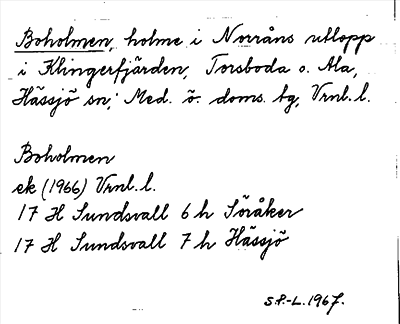 Boholmen, holme i Norråns utlopp
i Klingerfjärden, Torsboda o. Ala,
Hässjö sn; Med. ö. doms. tg, Vrnl. l.
Boholmen
ek (1966) Vrnl. l.
17 H Sundsvall 6 h Söråker
17 H Sundsvall 7 h Hässjö
S.P.-L. 1967.